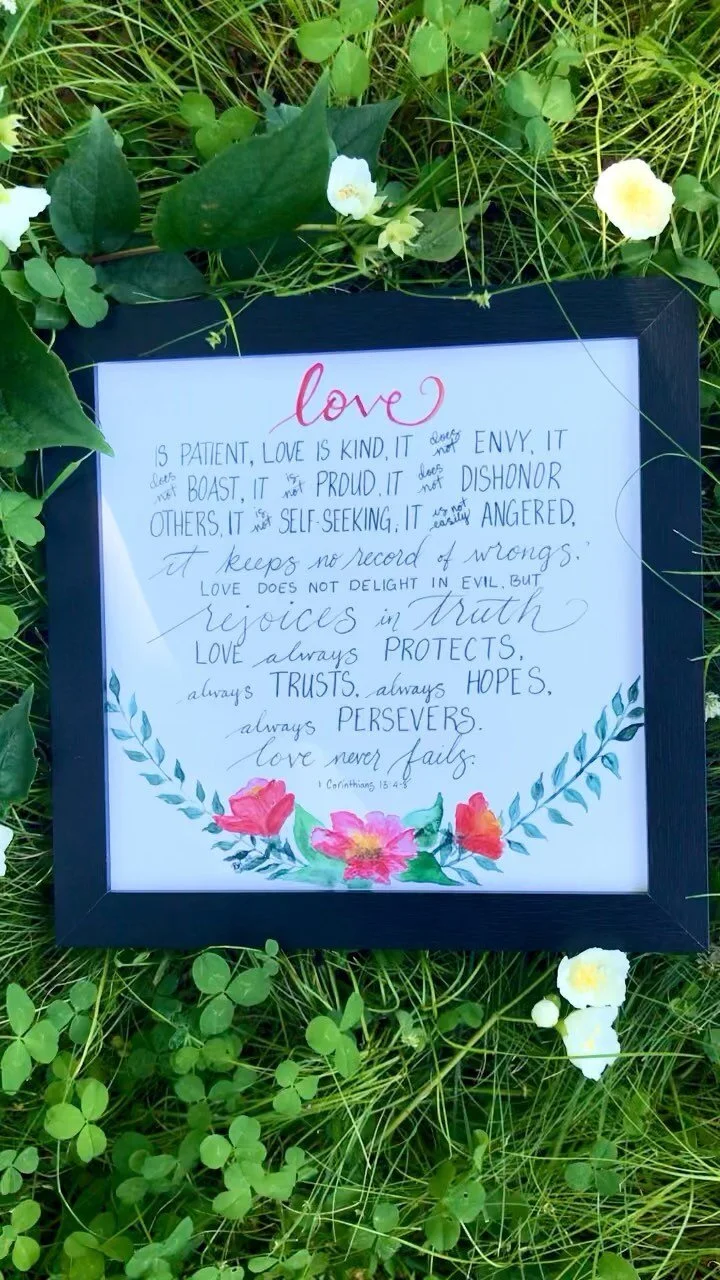 love
IS PATIENT, LOVE IS KIND, IT does not ENVY, IT
does not BOAST, IT is not PROUD, IT does not DISHONOR
OTHERS, IT is not SELF-SEEKING, IT is not easily ANGERED,
it keeps no record of wrongs.
LOVE DOES NOT DELIGHT IN EVIL, BUT
rejoices in truth
LOVE always PROTECTS,
always TRUSTS, always HOPES,
always PERSEVERS.
love never fails.
1 Corinthians 13:4-8